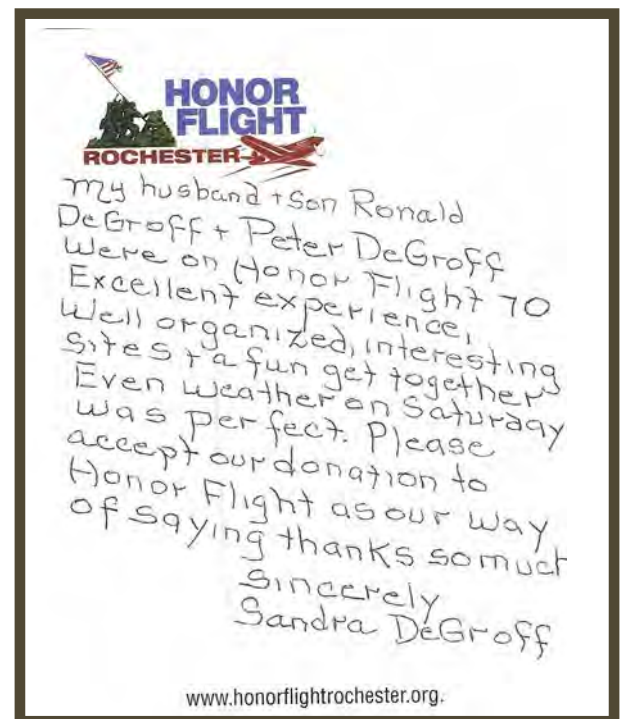 HONOR
FLIGHT
ROCHESTER
My husband + Son Ronald
DeGroff + Peter DeGroff
Were on Honor Flight 70
Excellent experience,
Well organized, interesting
Sites + a fun get together
Even Weather on Saturday
was perfect. Please
accept our donation to
Honor Flight as our way
of saying thanks so much
Sincerely
Sandra DeGroff
www.honorflightrochester.org.